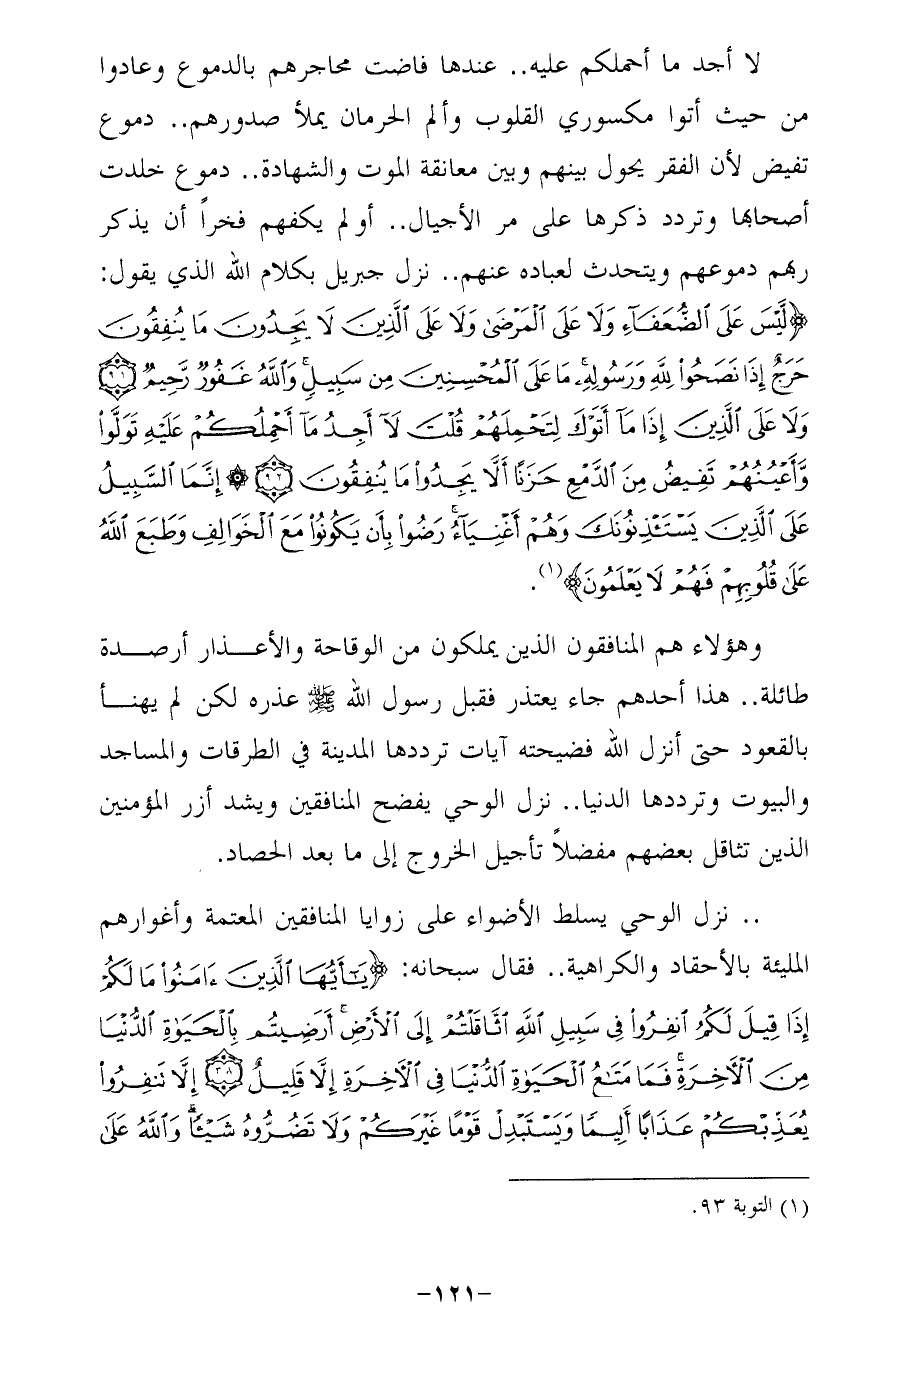 لا أجد ما أحملكم عليه.. عندها فاضت محاجرهم بالدموع وعادوا
من حيث أتوا مكسوري القلوب وألم الحرمان يملأ صدورهم.. دموع
تفيض لأن الفقر يحول بينهم وبين معانقة الموت والشهادة.. دموع خلدت
أصحابها وتردد ذكرها على مر الأجيال.. أو لم يكفهم فخراً أن يذكر
ربهم دموعهم ويتحدث لعباده عنهم.. نزل جبريل بكلام الله الذي يقول:
﴿لَّيْسَ عَلَى ٱلضُّعَفَآءِ وَلَا عَلَى ٱلْمَرْضَىٰ وَلَا عَلَى ٱلَّذِينَ لَا يَجِدُونَ مَا يُنفِقُونَ
حَرَجٌ إِذَا نَصَحُوا۟ لِلَّهِ وَرَسُولِهِۦ ۚ مَا عَلَى ٱلْمُحْسِنِينَ مِن سَبِيلٍ ۚ وَٱللَّهُ غَفُورٌ رَّحِيمٌ ٩١
وَلَا عَلَى ٱلَّذِينَ إِذَا مَآ أَتَوْكَ لِتَحْمِلَهُمْ قُلْتَ لَآ أَجِدُ مَآ أَحْمِلُكُمْ عَلَيْهِ تَوَلَّوا۟
وَّأَعْيُنُهُمْ تَفِيضُ مِنَ ٱلدَّمْعِ حَزَنًا أَلَّا يَجِدُوا۟ مَا يُنفِقُونَ ٩٢ ۞ إِنَّمَا ٱلسَّبِيلُ
عَلَى ٱلَّذِينَ يَسْتَـْٔذِنُونَكَ وَهُمْ أَغْنِيَآءُ ۚ رَضُوا۟ بِأَن يَكُونُوا۟ مَعَ ٱلْخَوَالِفِ وَطَبَعَ ٱللَّهُ
عَلَىٰ قُلُوبِهِمْ فَهُمْ لَا يَعْلَمُونَ﴾(١).
وهؤلاء هم المنافقون الذين يملكون من الوقاحة والأعـــذار أرصـــدة
طائلة.. هذا أحدهم جاء يعتذر فقبل رسول الله ﷺ عذره لكن لم يهنـــأ
بالقعود حتى أنزل الله فضيحته آيات ترددها المدينة في الطرقات والمساجد
والبيوت وترددها الدنيا.. نزل الوحي يفضح المنافقين ويشد أزر المؤمنين
الذين تثاقل بعضهم مفضلاً تأجيل الخروج إلى ما بعد الحصاد.
.. نزل الوحي يسلط الأضواء على زوايا المنافقين المعتمة وأغوارهم
المليئة بالأحقاد والكراهية.. فقال سبحانه: ﴿يَـٰٓأَيُّهَا ٱلَّذِينَ ءَامَنُوا۟ مَا لَكُمْ
إِذَا قِيلَ لَكُمُ ٱنفِرُوا۟ فِى سَبِيلِ ٱللَّهِ ٱثَّاقَلْتُمْ إِلَى ٱلْأَرْضِ ۚ أَرَضِيتُم بِٱلْحَيَوٰةِ ٱلدُّنْيَا
مِنَ ٱلْـَٔاخِرَةِ ۚ فَمَا مَتَـٰعُ ٱلْحَيَوٰةِ ٱلدُّنْيَا فِى ٱلْـَٔاخِرَةِ إِلَّا قَلِيلٌ ٣٨ إِلَّا تَنفِرُوا۟
يُعَذِّبْكُمْ عَذَابًا أَلِيمًا وَيَسْتَبْدِلْ قَوْمًا غَيْرَكُمْ وَلَا تَضُرُّوهُ شَيْـًٔا ۗ وَٱللَّهُ عَلَىٰ
(١) التوبة ٩٣.
-١٢١-